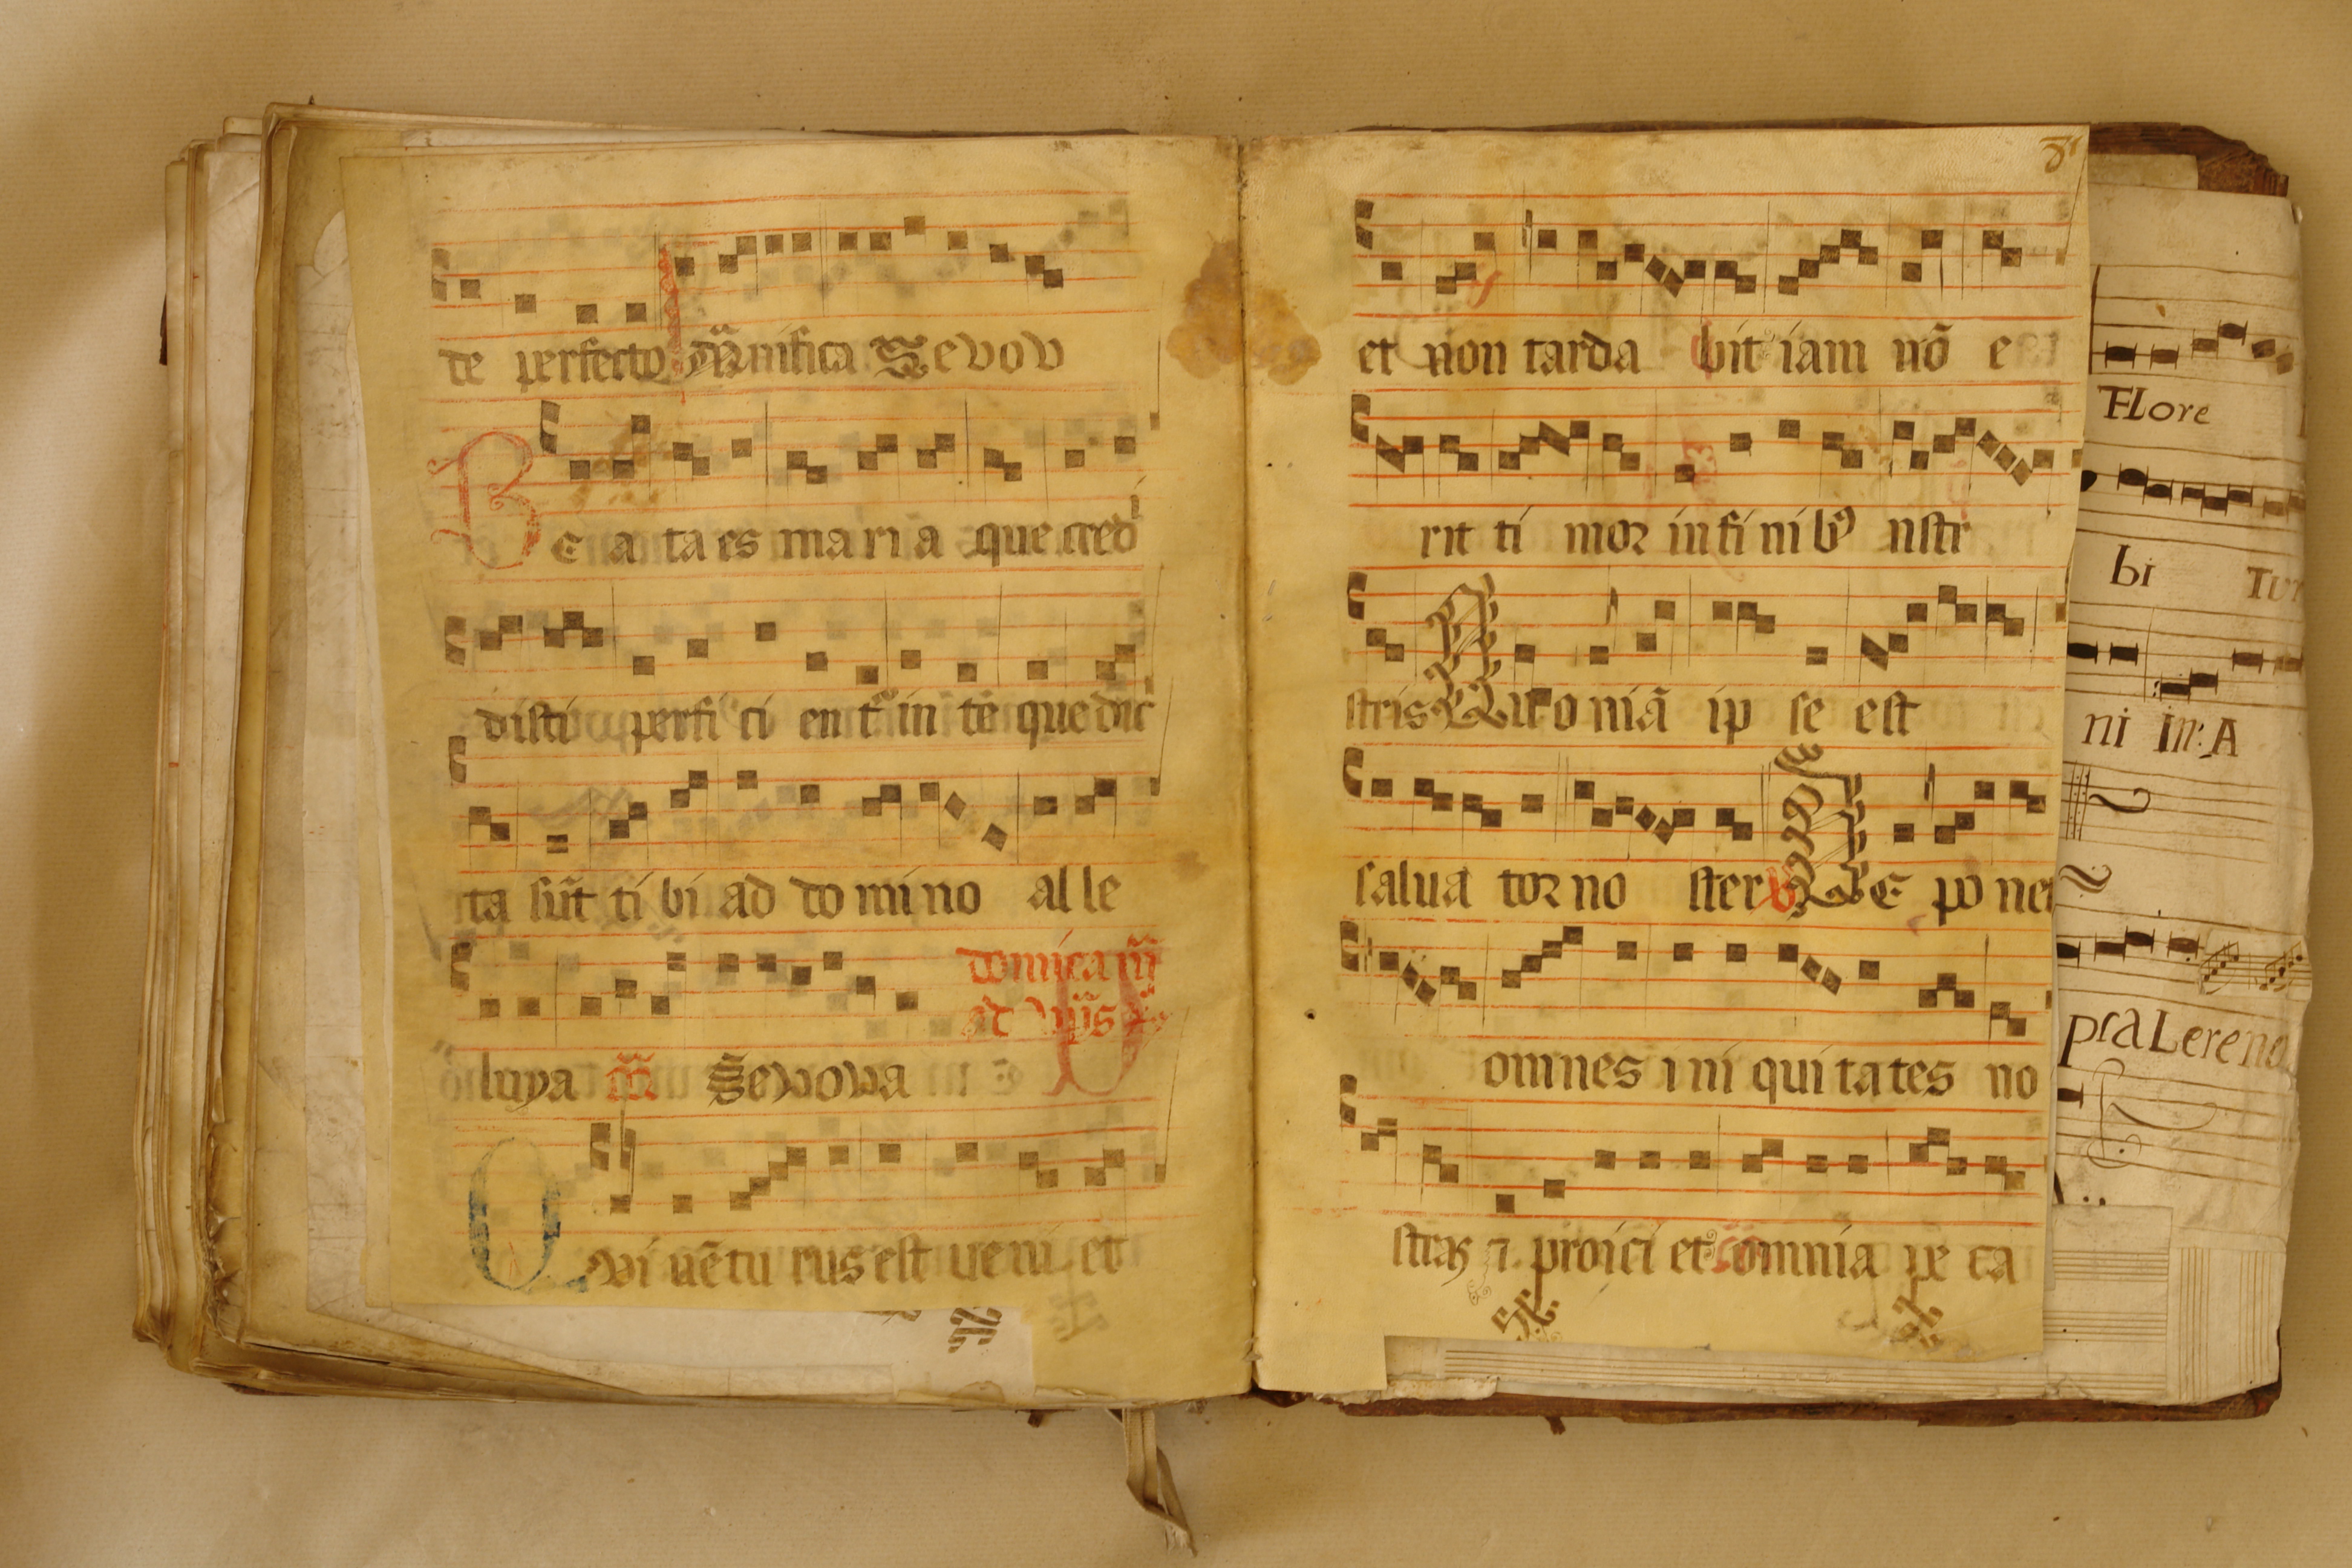 de perfecto mãnifica Sevov
Be a ta es ma ri a que credi
disti perfi ci en t᷑ in te que dic̃
ta sũt ti bi ad do mi no al le
domíca iij
ad
luya m̃ Sevova
Qvi uẽ tu rus est ue ni et
et non tarda bit iam nõ e
rit ti mor in fi ni bꝰ nostr
stris Quo niã ip se est
salua tor no ster ℣ DE po net
omnes i ni qui ta tes no
stras ⁊ proici et omnia pe ca
FLore
bi TUr
ni in: A
praLereno